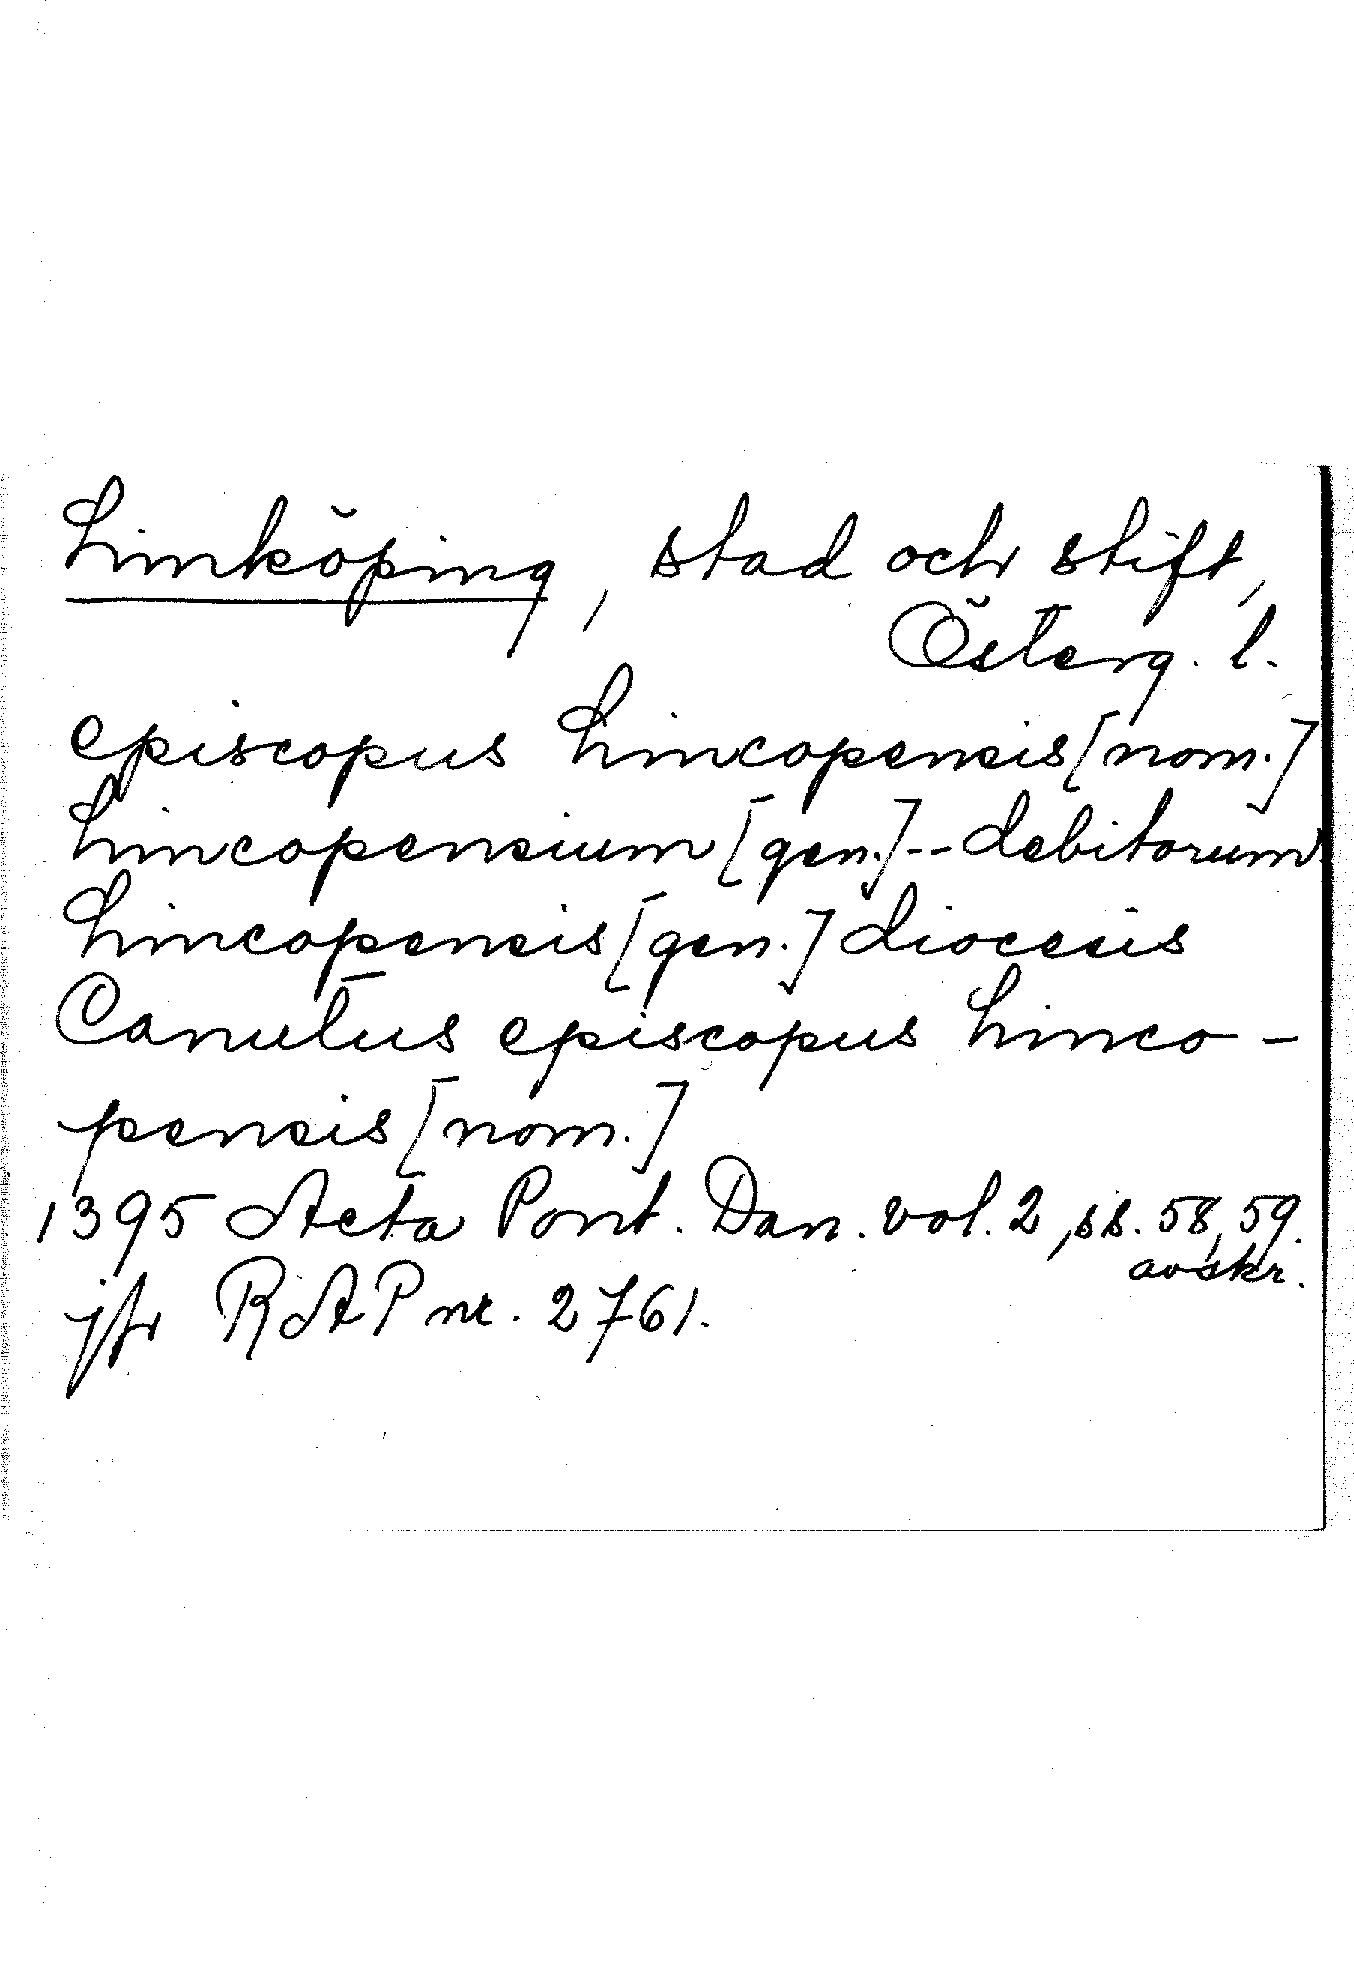 Linköping, stad och stift,
Österg. l.
episcopus Lincopensis [nom.]
Lincopensium [gen.] -- debitorum
Lincopensis [gen.] diocesis
Canutus episcopus Linco-
pensis [nom.]
1395 Acta Pont. Dan. vol. 2, ss. 58, 59.
avskr.
jfr RAP nr. 2761.